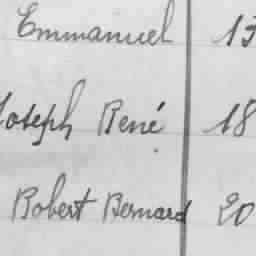 Emmanuel 13
Joseph René 18
Robert Bernard 20